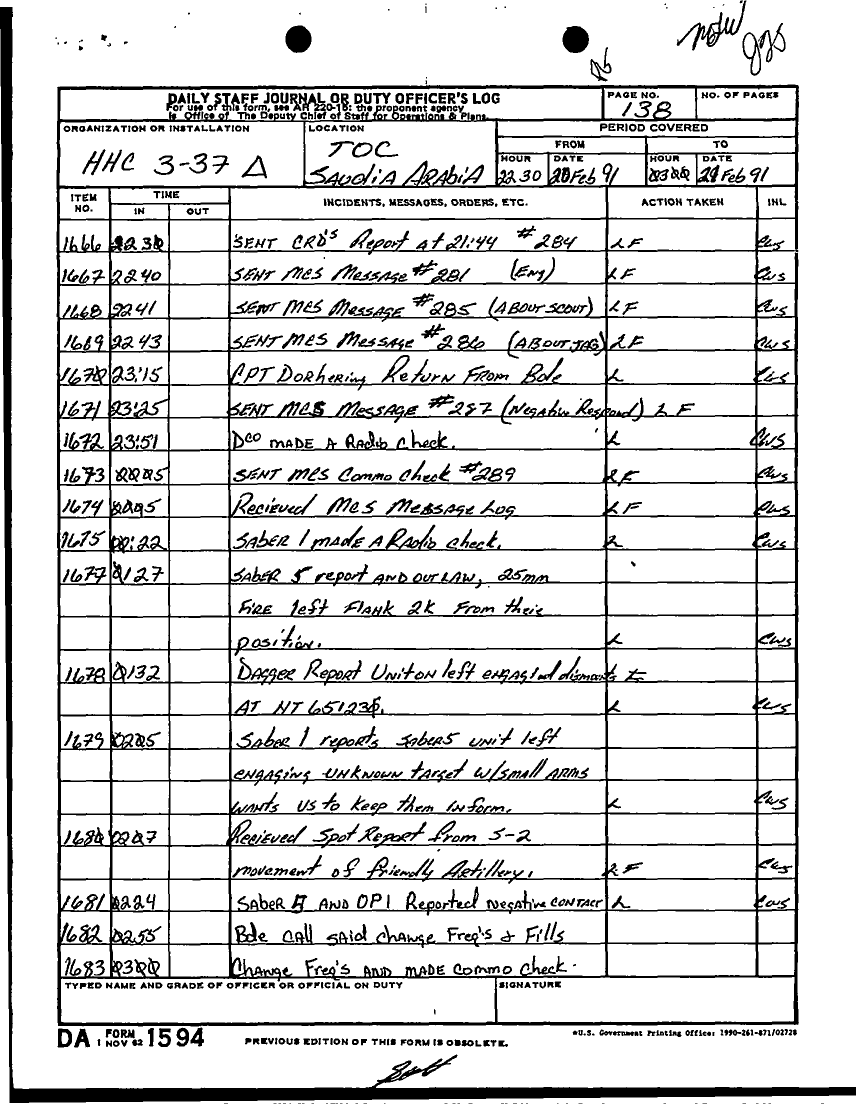 noted
DAILY STAFF JOURNAL OR DUTY OFFICER'S LOG
For use of this form, see AR 220-15: the proponent agency
is Office of The Deputy Chief of Staff for Operations & Plans.
PAGE NO.
138
NO. OF PAGES
ORGANIZATION OR INSTALLATION
HHC 3-37 Δ
LOCATION
TOC
SAUDIA ARABIA
PERIOD COVERED
FROM
TO
HOUR DATE HOUR DATE
22 30 20 Feb 91 0300 21 Feb 91
ITEM NO. TIME IN OUT INCIDENTS, MESSAGES, ORDERS, ETC. ACTION TAKEN INL
1666 2230 SENT CRD'S Report at 21:44 #284 LF CWS
1667 2240 SENT MCS MESSAGE #281 (Eng) LF CWS
1668 2241 SENT MCS MESSAGE #285 (ABOUT SCOUT) LF CWS
1669 2243 SENT MCS MESSAGE #286 (ABOUT JAG) LF CWS
1670 23:15 CPT Dorhering Return From Bde L CWS
1671 23:25 SENT MCS MESSAGE #287 (Negative Respond) LF
1672 23:51 DCO MADE A Radio Check. L CWS
1673 0005 SENT MCS Commo check #289 LF CWS
1674 0005 Recieved MCS MESSAGE Log LF CWS
1675 00:22 SABER 1 made A Radio check. L CWS
1677 0127 SABER 5 report AND OUTLAW, 25mm
FIRE left FlAnK 2K From their
position. L CWS
1678 0132 DAGGER Report Unit on left engagind dismounts
AT NT 651230. L CWS
1679 0205 Saber 1 reports saber5 unit left
engaging unknown target w/small arms
wants us to keep them inform. L CWS
1680 0207 Recieved Spot Report from S-2
movement of friendly Artillery. LF CWS
1681 0224 SABER AND OP1 Reported negative contact L CWS
1682 0255 Bde call said change Freq's & Fills
1683 0300 Change Freq's AND MADE Commo check.
TYPED NAME AND GRADE OF OFFICER OR OFFICIAL ON DUTY
SIGNATURE
DA FORM 1 NOV 62 1594
PREVIOUS EDITION OF THIS FORM IS OBSOLETE.
*U.S. Government Printing Office: 1990-261-871/02728